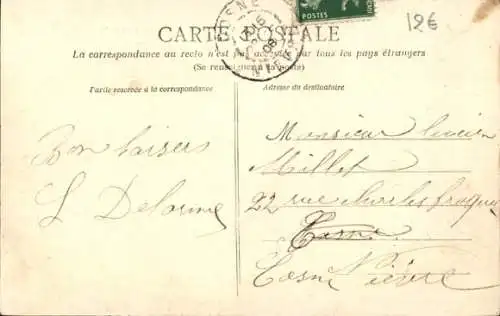 12€
POSTES
COSNE
08
NIÈVRE
CARTE POSTALE
La correspondance au recto n'est pas acceptée par tous les pays étrangers
(Se renseigner à la poste)
Partie réservée à la correspondance
Adresse du destinataire
Bon baisers
L Delorme
Monsieur Lucien
Millet
22 rue Charles
Cosne
Cosne Nièvre